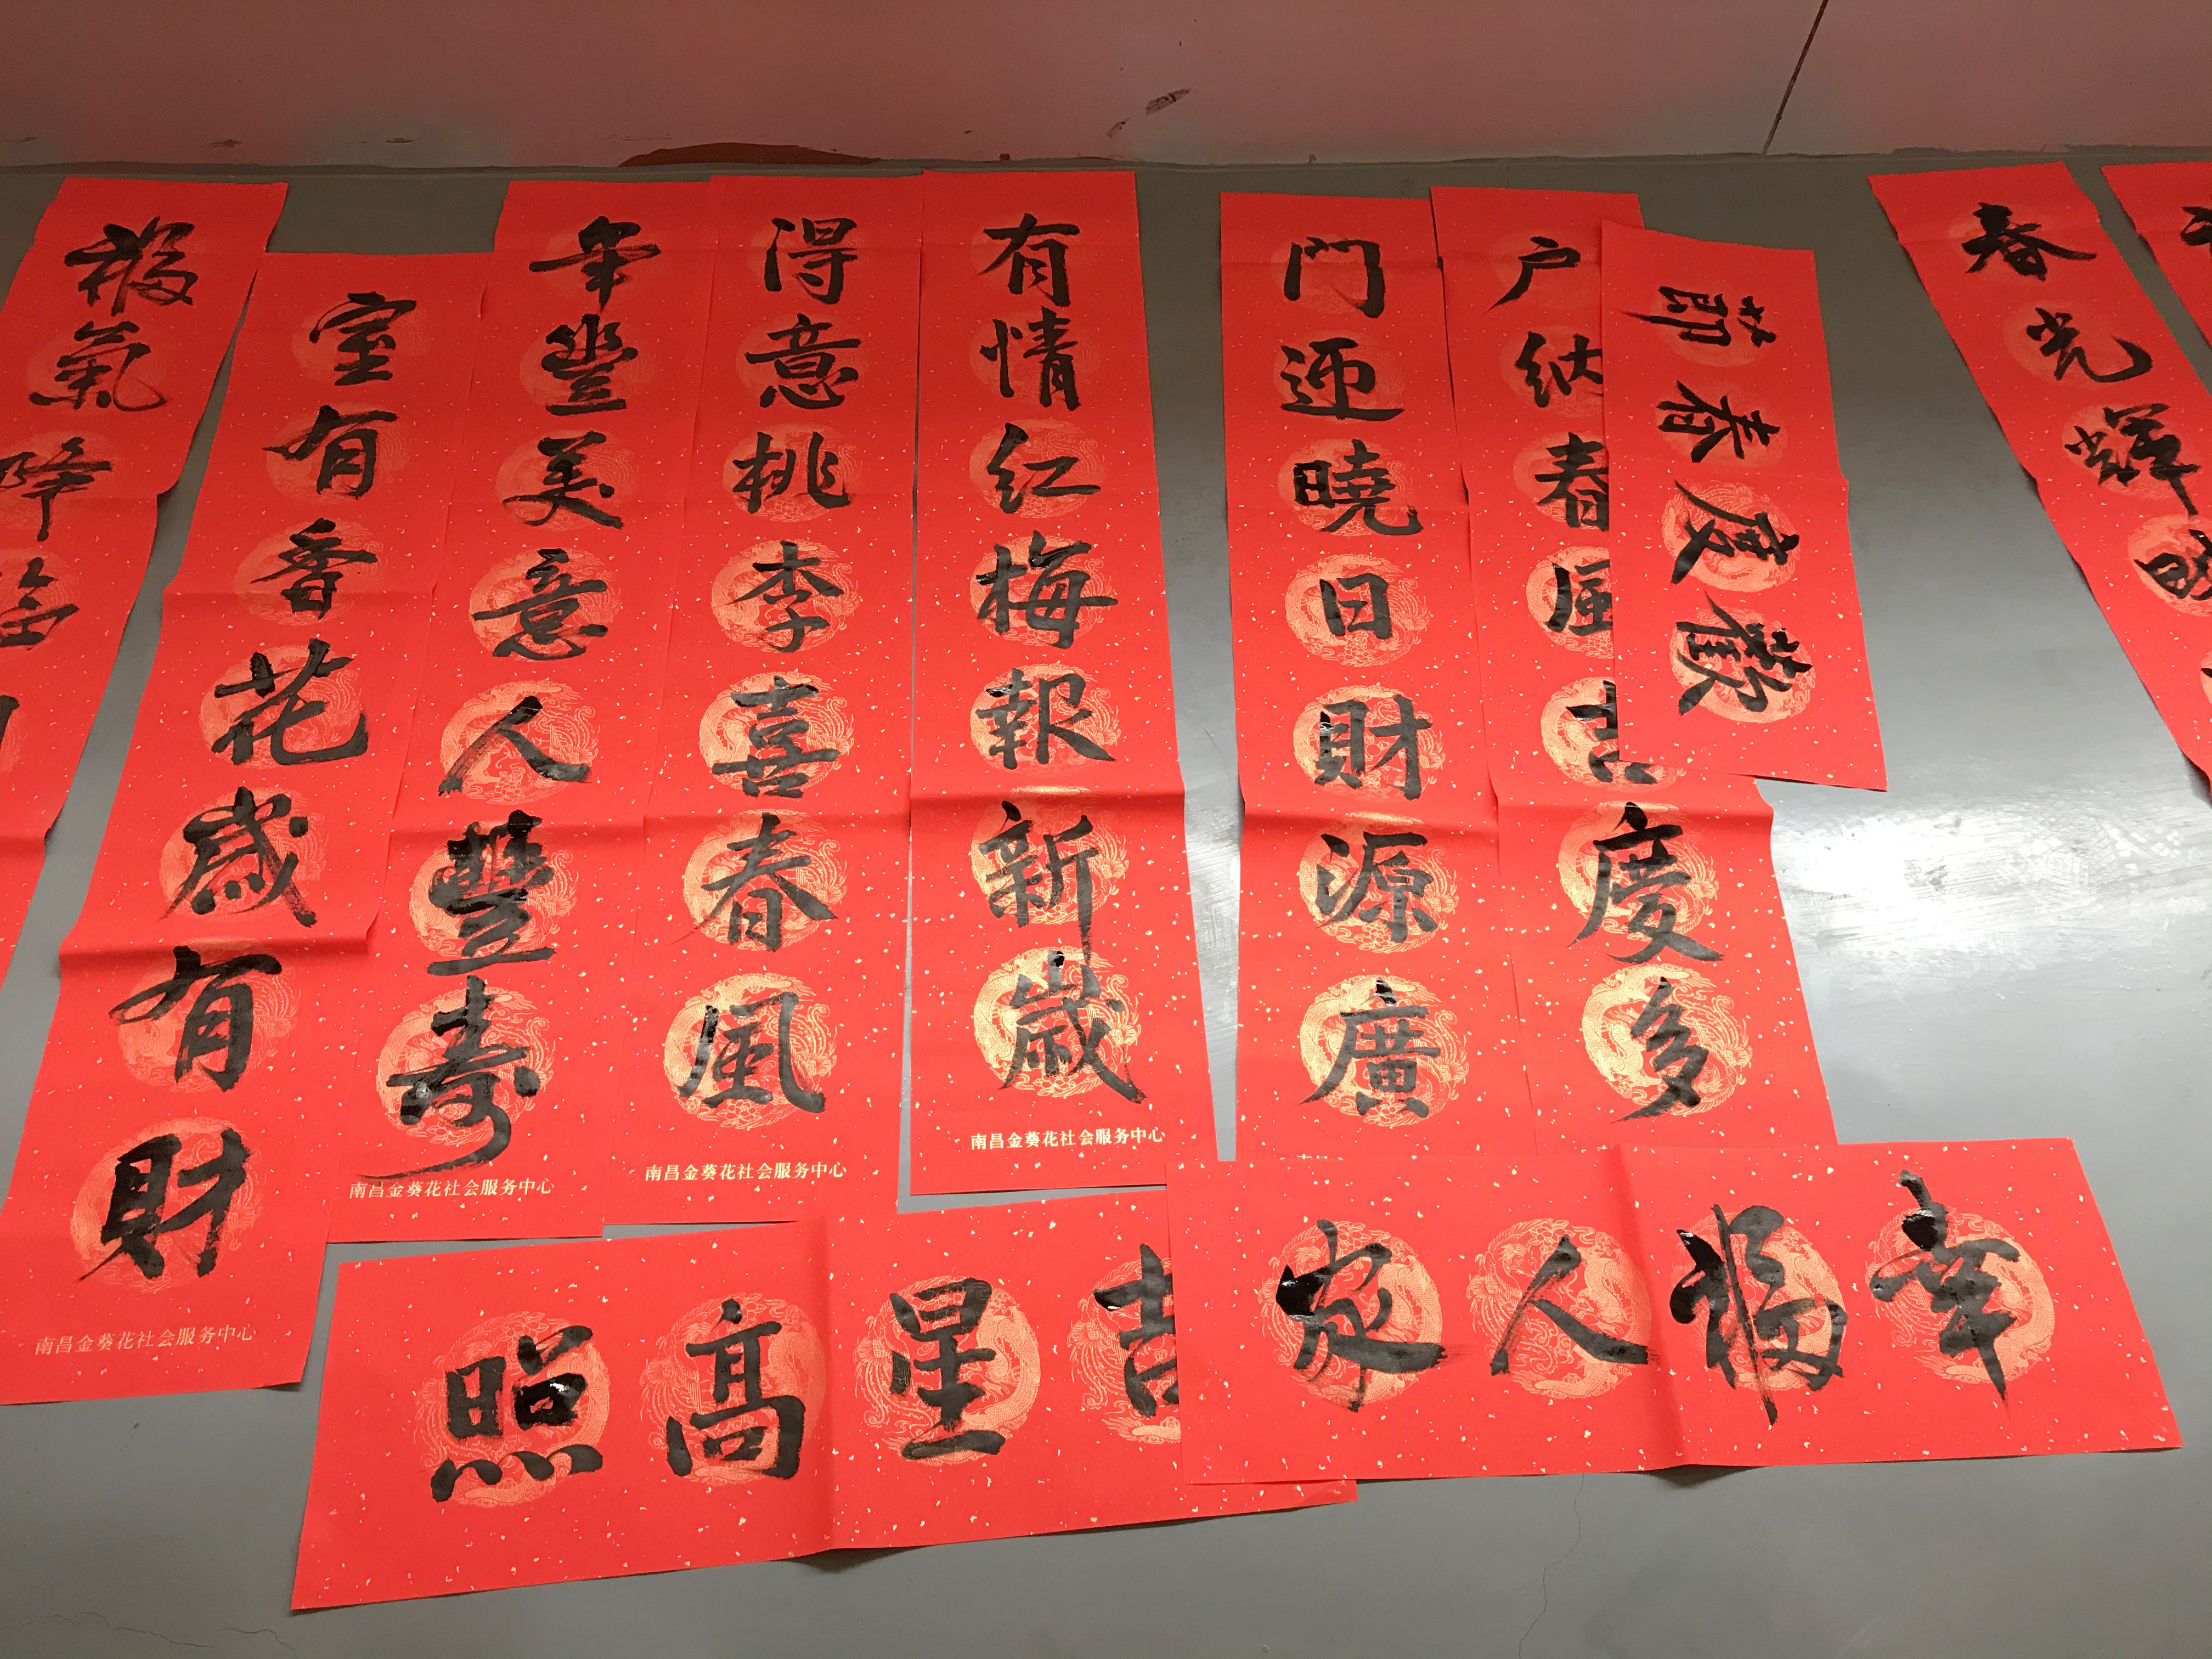 福氣降
室有香花歲有財
南昌金葵花社会服务中心
年豐美意人豐壽
南昌金葵花社会服务中心
得意桃李喜春風
南昌金葵花社会服务中心
有情红梅報新歲
南昌金葵花社会服务中心
门迎曉日財源廣
户纳春風吉慶多
歡度春節
春光輝
吉星高照
幸福人家